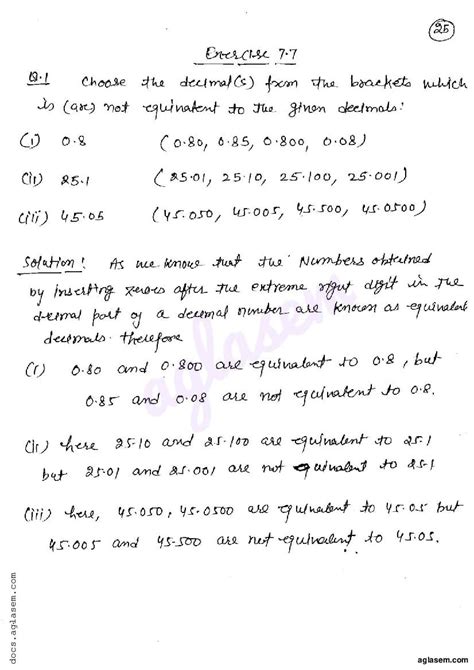 25
Exercise 7.7
Q.1 Choose the decimal(s) from the brackets which
is (are) not equivalent to the given decimals:
(i) 0.8 (0.80, 0.85, 0.800, 0.08)
(ii) 25.1 (25.01, 25.10, 25.100, 25.001)
(iii) 45.05 (45.050, 45.005, 45.500, 45.0500)
Solution! As we know that the Numbers obtained
by inserting zeroes after the extreme right digit in the
decimal part of a decimal number are known as equivalent
decimals. therefore
(i) 0.80 and 0.800 are equivalent to 0.8, but
0.85 and 0.08 are not equivalent to 0.8.
(ii) here 25.10 and 25.100 are equivalent to 25.1
but 25.01 and 25.001 are not equivalent to 25.1
(iii) here, 45.050, 45.0500 are equivalent to 45.05 but
45.005 and 45.500 are not equivalent to 45.05.
aglasem
docs.aglasem.com
aglasem.com